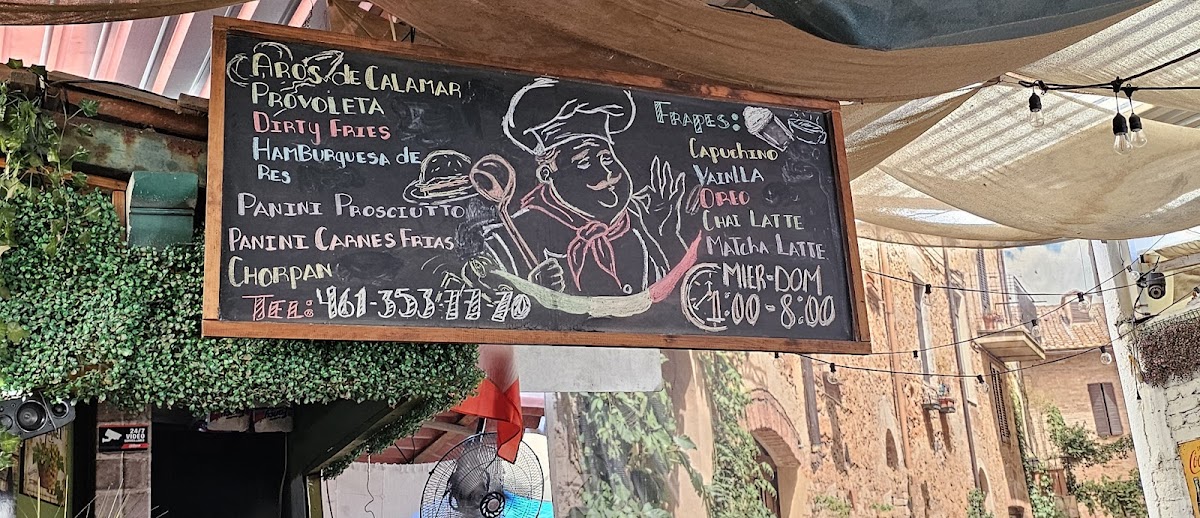 AROS de CALAMAR
PROVOLETA
DIRTY FRIES
HAMBURGUESA DE
RES
PANINI PROSCIUTTO
PANINI CARNES FRIAS
CHORPAN
TEL: 461-353-77-70
FRAPES:
CAPUCHINO
VAINLLA
OREO
CHAI LATTE
MATCHA LATTE
MIER-DOM
1:00-8:00
24/7
VIDEO